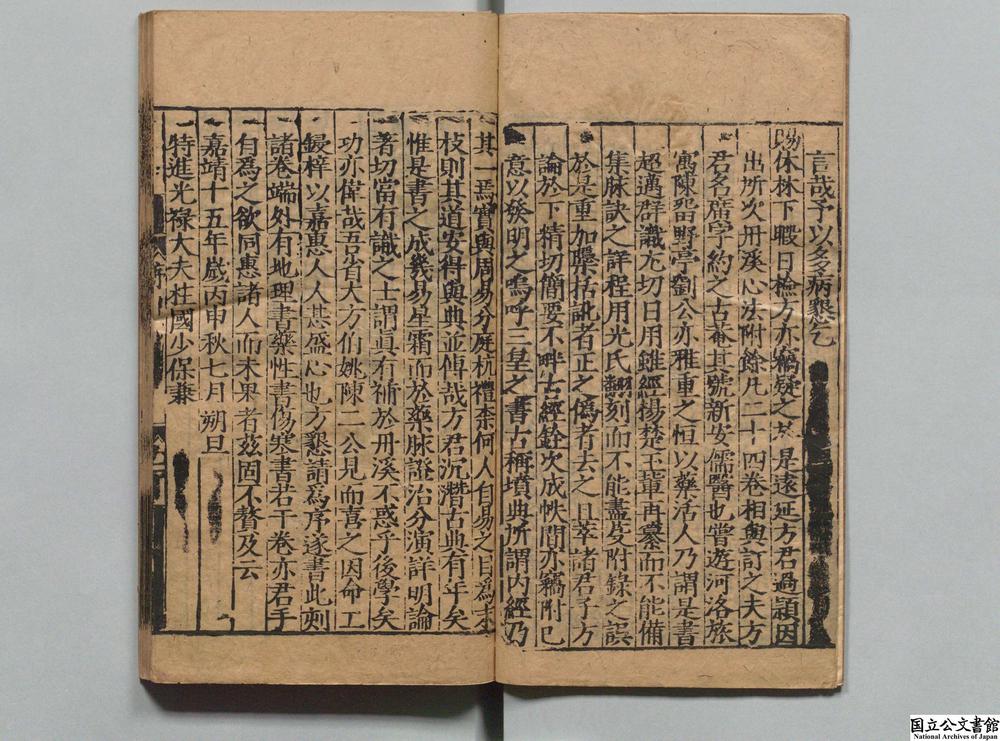 言哉予以多病懇乞
賜休林下暇日檢方亦竊疑之於是遠延方君過潁因
出所次丹溪心法附餘凡二十四卷相與訂之夫方
君名廣字約之古菴其號新安儒醫也嘗遊河洛旅
寓陳留野亭劉公亦雅重之恒以藥活人乃謂是書
超邁群識尤切日用雖經楊楚玉輩再纂而不能備
集脉訣之詳程用光氏翻刻而不能盡芟附錄之誤
於是重加檃括訛者正之僞者去之且萃諸君子方
論於下精切簡要不畔古經銓次成帙間亦竊附己
意以發明之嗚呼三皇之書古稱墳典所謂内經乃
其一焉實與周易分庭杭禮柰何人自易之目爲末
枝則其道安得與典並倬哉方君沉潛古典有年矣
惟是書之成幾易星霜而於藥脉證治分演詳明論
著切當有識之士謂眞有補於丹溪不惑乎後學矣
功亦偉哉吾省大方伯姚陳二公見而喜之因命工
鋟梓以嘉惠人人甚盛心也方懇請爲序遂書此刻
諸卷端外有地理書藥性書傷寒書若干卷亦君手
自爲之欲同惠諸人而未果者茲固不贅及云
嘉靖十五年歲丙申秋七月朔旦
特進光祿大夫柱國少保兼
国立公文書館
National Archives of Japan